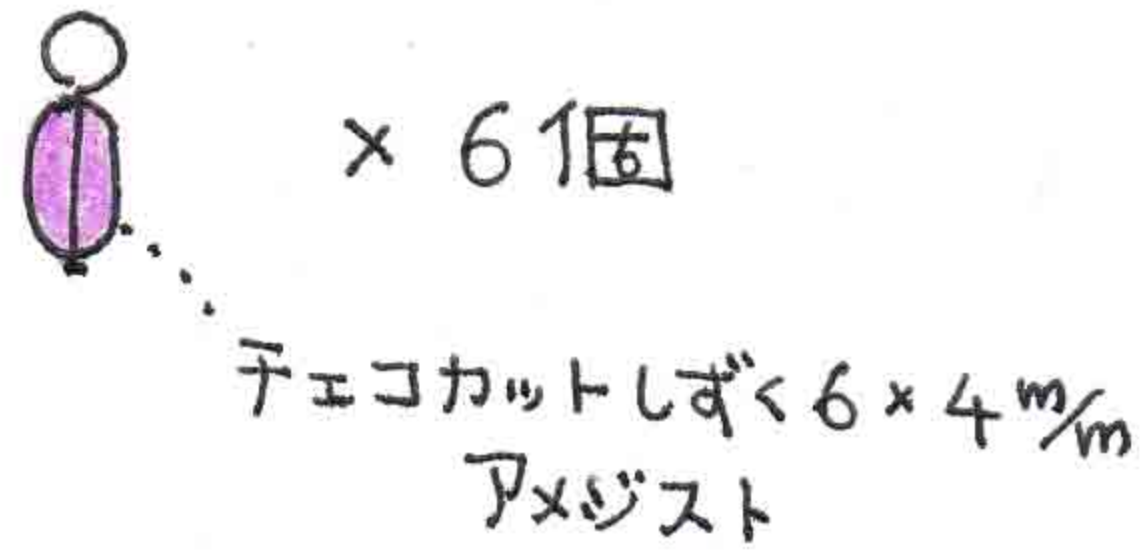 × 6個
チェコカットしずく6×4m/m
アメジスト